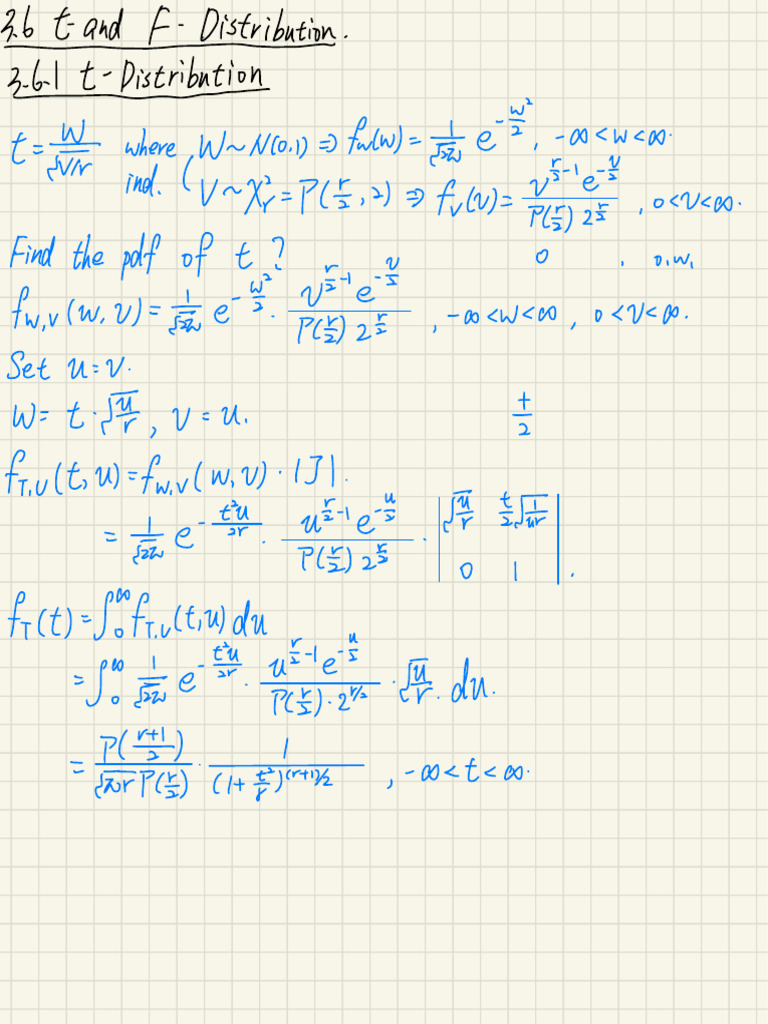 3.6 t- and F- Distribution.
3.6.1 t-Distribution
t = W/√(V/r) where ind. ( W ~ N(0,1) ⇒ f_W(w) = 1/√(2π) e^(-w²/2), -∞ < w < ∞.
V ~ χ²_r = Γ(r/2, 2) ⇒ f_V(v) = v^(r/2-1) e^(-v/2) / (Γ(r/2) 2^(r/2)), 0 < v < ∞.
Find the pdf of t? 0 , o.w.
f_{W,V}(w,v) = 1/√(2π) e^(-w²/2) · v^(r/2-1) e^(-v/2) / (Γ(r/2) 2^(r/2)), -∞ < w < ∞, 0 < v < ∞.
Set u = v.
W = t·√(u/r), v = u. t/2
f_{T,U}(t,u) = f_{W,V}(w,v) · |J|.
= 1/√(2π) e^(-t²u/2r) · u^(r/2-1) e^(-u/2) / (Γ(r/2) 2^(r/2)) · | √(u/r) t/2 √(1/ur) ; 0 1 |.
f_T(t) = ∫_0^∞ f_{T,U}(t,u) du
= ∫_0^∞ 1/√(2π) e^(-t²u/2r) · u^(r/2-1) e^(-u/2) / (Γ(r/2) · 2^(r/2)) · √(u/r) · du.
= Γ((r+1)/2) / (√(πr) Γ(r/2)) · 1 / (1 + t²/r)^((r+1)/2), -∞ < t < ∞.